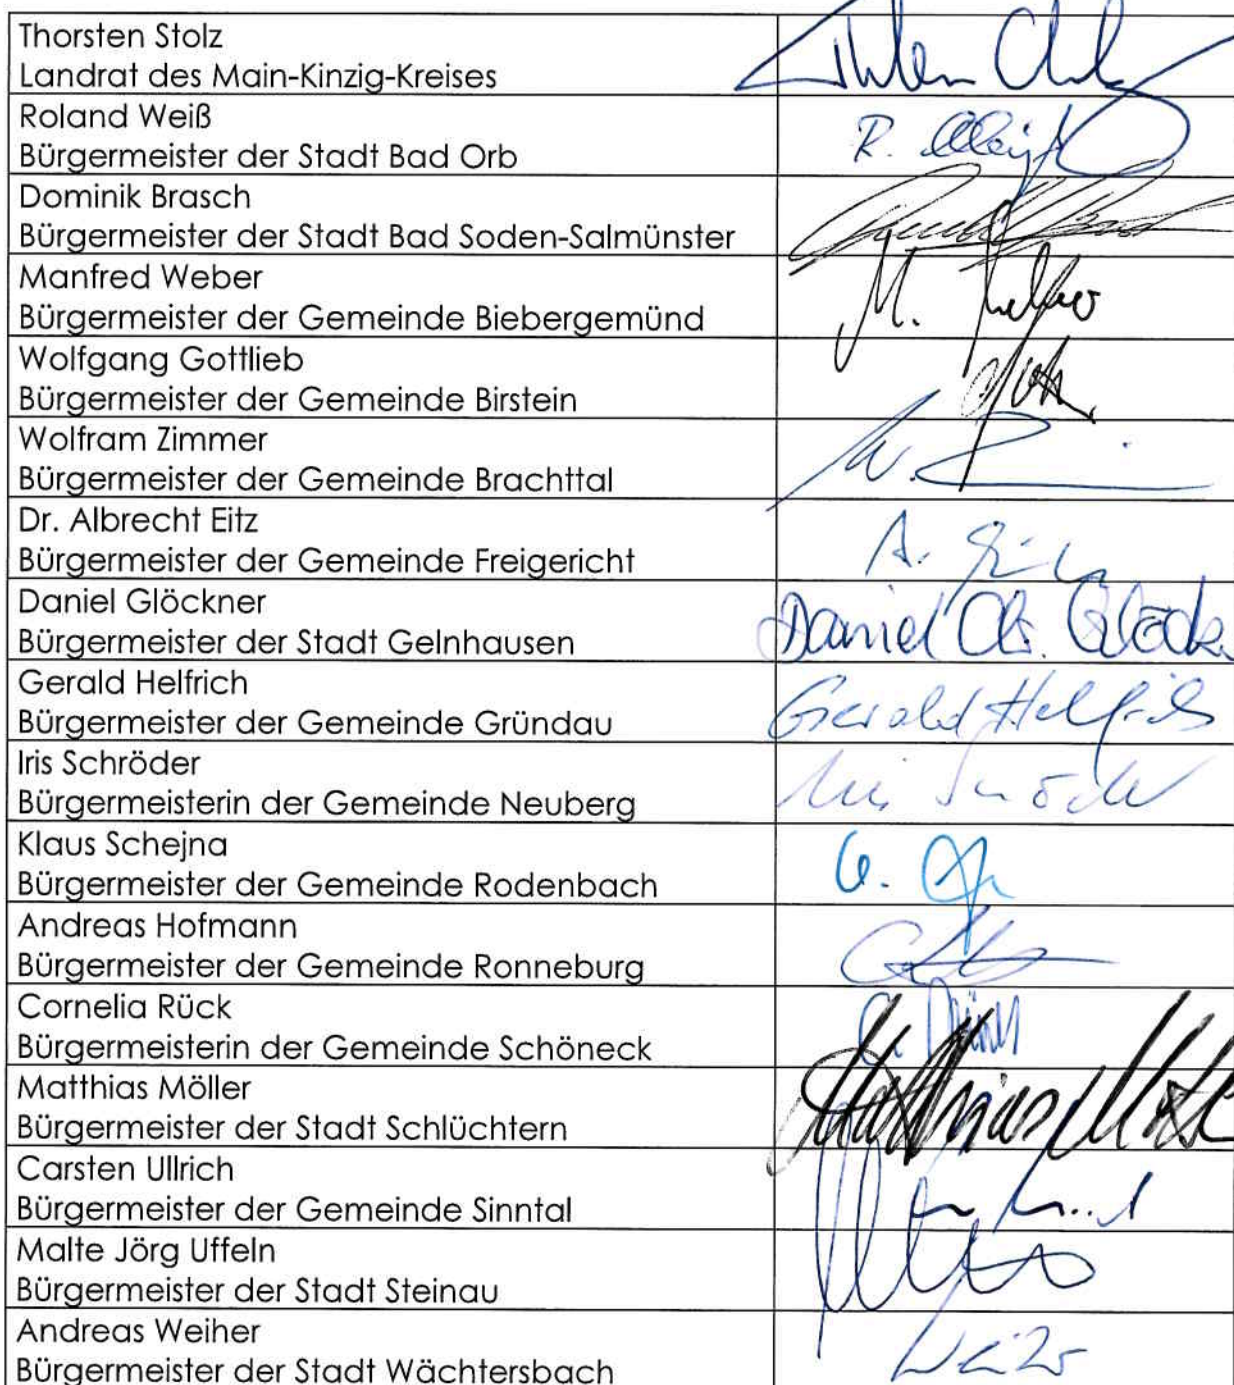 Thorsten Stolz
Landrat des Main-Kinzig-Kreises
Roland Weiß
Bürgermeister der Stadt Bad Orb
R. Weiß
Dominik Brasch
Bürgermeister der Stadt Bad Soden-Salmünster
Manfred Weber
Bürgermeister der Gemeinde Biebergemünd
M. Weber
Wolfgang Gottlieb
Bürgermeister der Gemeinde Birstein
Wolfram Zimmer
Bürgermeister der Gemeinde Brachttal
W.
Dr. Albrecht Eitz
Bürgermeister der Gemeinde Freigericht
A. Eitz
Daniel Glöckner
Bürgermeister der Stadt Gelnhausen
Daniel Chr. Glöckner
Gerald Helfrich
Bürgermeister der Gemeinde Gründau
Gerald Helfrich
Iris Schröder
Bürgermeisterin der Gemeinde Neuberg
Iris Schröder
Klaus Schejna
Bürgermeister der Gemeinde Rodenbach
Andreas Hofmann
Bürgermeister der Gemeinde Ronneburg
Cornelia Rück
Bürgermeisterin der Gemeinde Schöneck
C. Rück
Matthias Möller
Bürgermeister der Stadt Schlüchtern
Matthias Möller
Carsten Ullrich
Bürgermeister der Gemeinde Sinntal
Malte Jörg Uffeln
Bürgermeister der Stadt Steinau
Andreas Weiher
Bürgermeister der Stadt Wächtersbach
Weiher